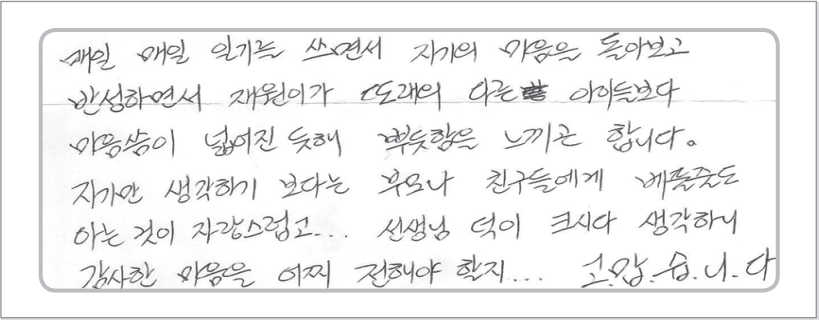 매일 매일 일기를 쓰면서 자기의 마음을 돌아보고
반성하면서 재원이가 또래의 다른 아이들보다
마음씀이 넓어진 듯해 뿌듯함을 느끼곤 합니다.
자기만 생각하기 보다는 부모나 친구들에게 베풀줄도
아는 것이 자랑스럽고... 선생님 덕이 크시다 생각하니
감사한 마음을 어찌 전해야 할지... 고.맙.습.니.다